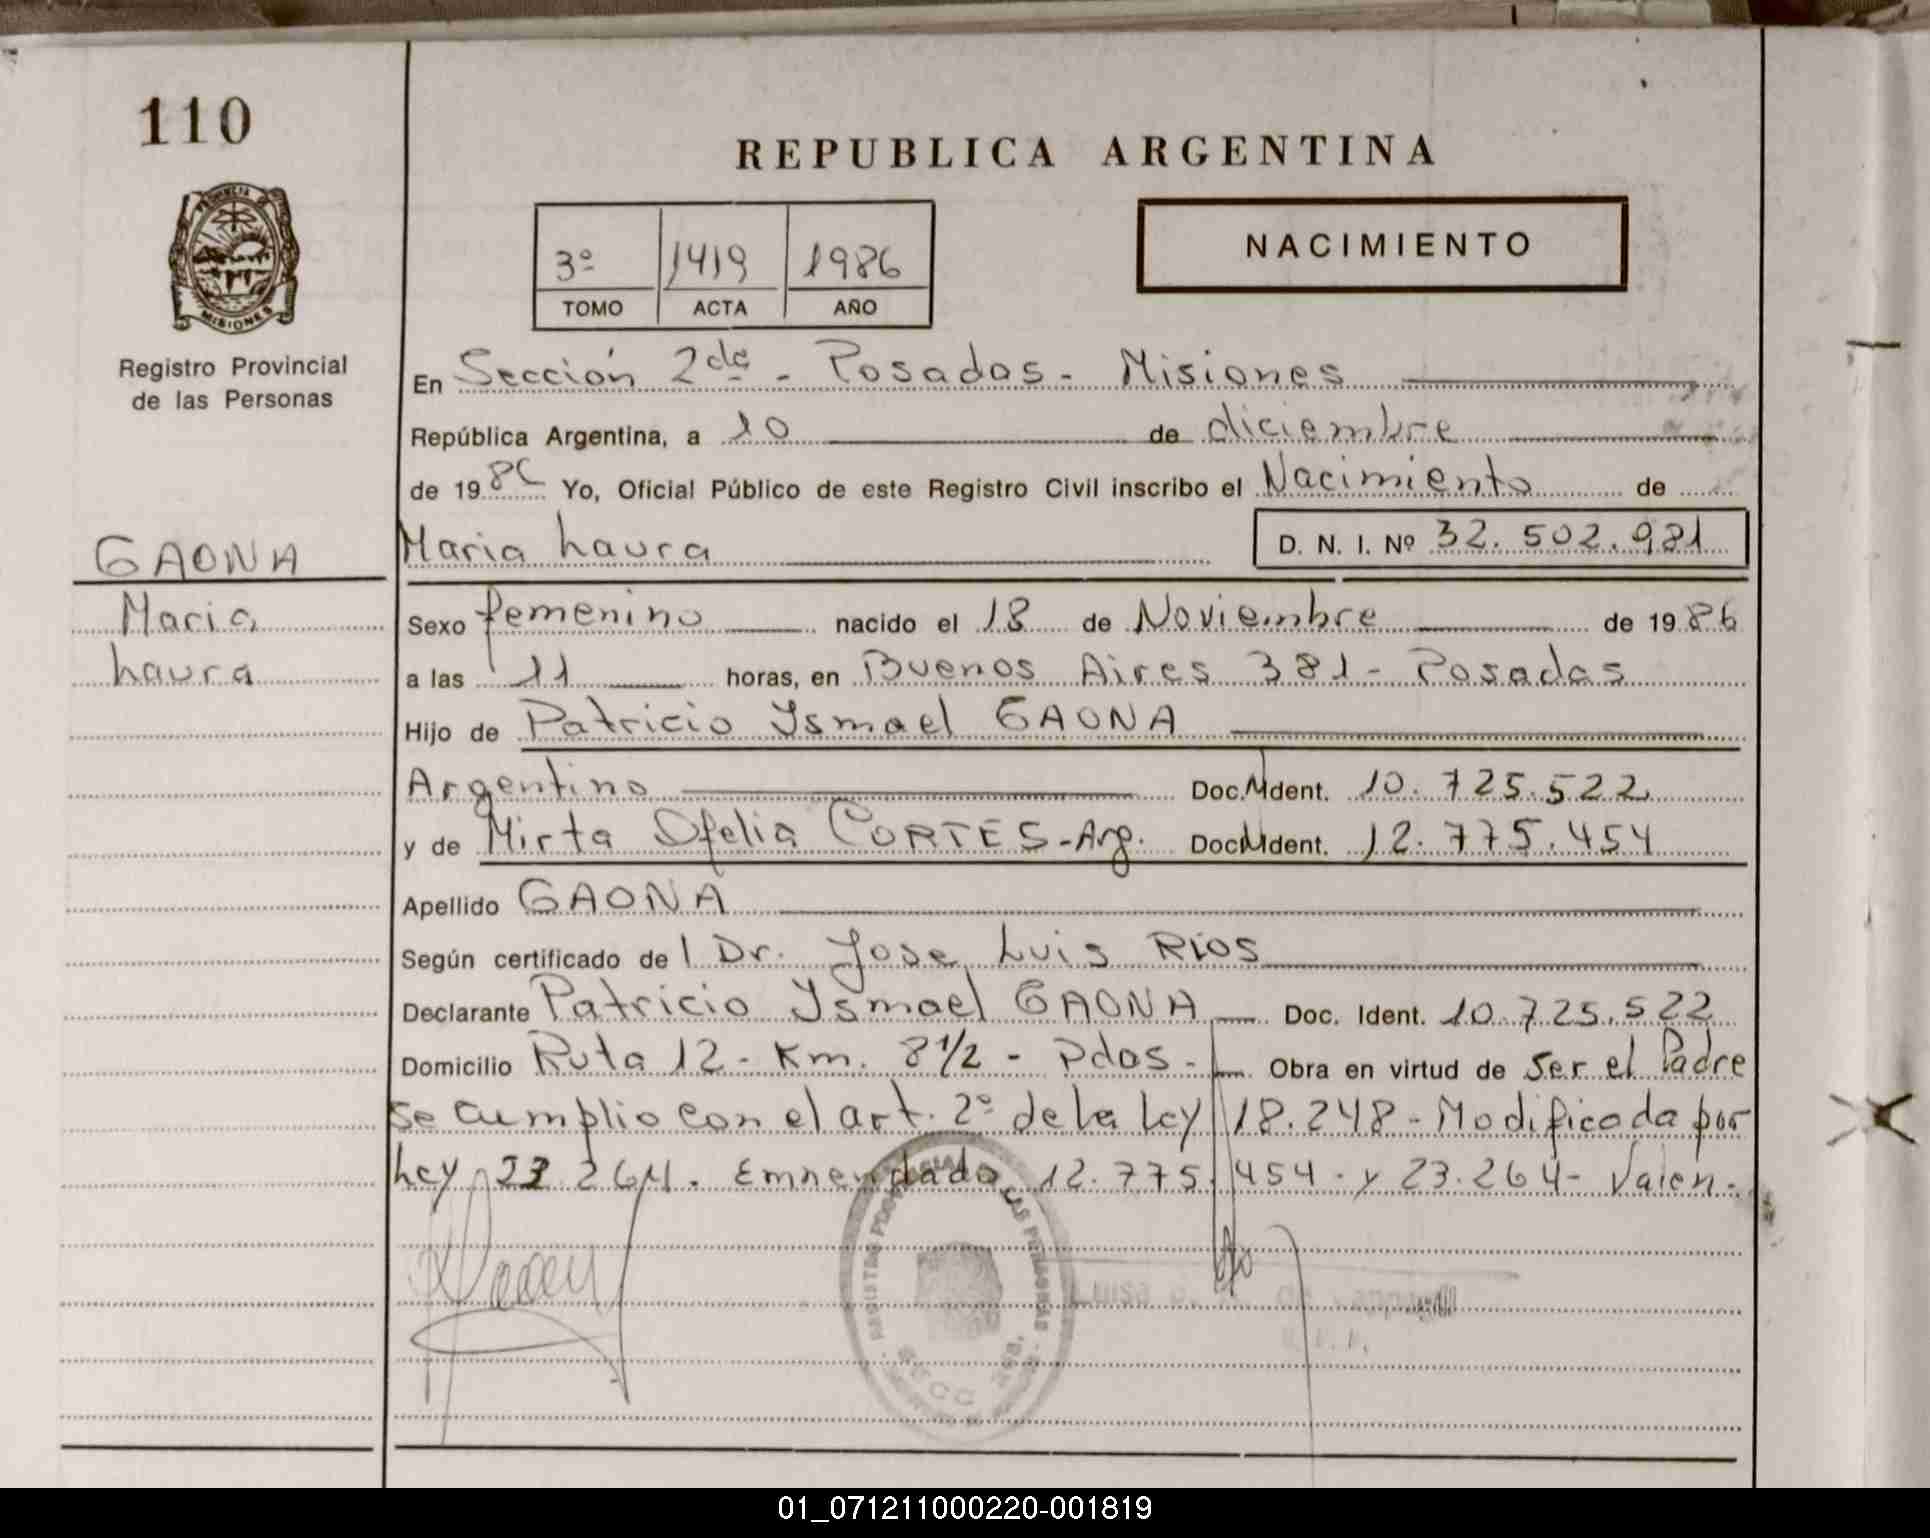 110
REPUBLICA ARGENTINA
PROVINCIA D
MISIONES
Registro Provincial
de las Personas
3º 1419 1986
TOMO ACTA AÑO
NACIMIENTO
En Sección 2da - Posadas - Misiones
República Argentina, a 10 de diciembre
de 1986 Yo, Oficial Público de este Registro Civil inscribo el Nacimiento de
GAONA
Maria
Laura
Maria Laura D. N. I. Nº 32.502.981
Sexo femenino nacido el 18 de Noviembre de 1986
a las 11 horas, en Buenos Aires 381 - Posadas
Hijo de Patricio Ysmael GAONA
Argentino Doc. M Ident. 10.725.522
y de Mirta Ofelia CORTES - Arg. Doc. M Ident. 12.775.454
Apellido GAONA
Según certificado de l Dr. Jose Luis RIOS
Declarante Patricio Ysmael GAONA Doc. Ident. 10.725.522
Domicilio Ruta 12 - Km. 8 1/2 - Pdas - Obra en virtud de Ser el Padre
Se cumplio con el art. 2º de la Ley 18.248 - Modificada por
Ley 23.264. Emnendado 12.775.454 - y 23.264 - Valen.-
SECC 2da.
Luisa de
01_071211000220-001819